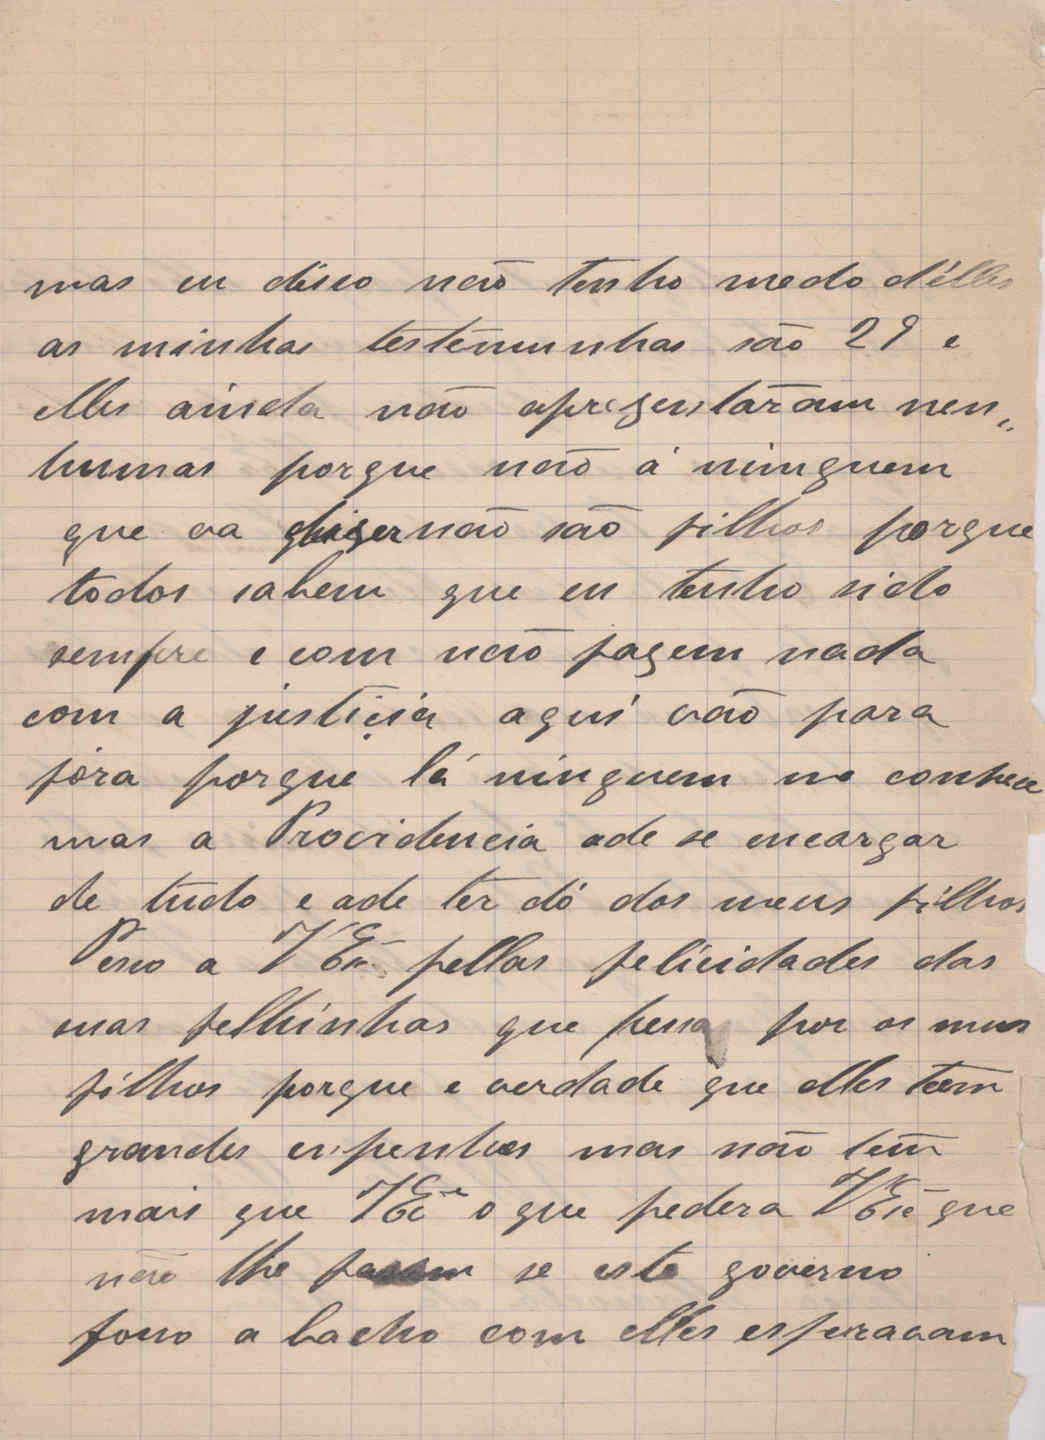 mas eu disco não tenho medo d'elles
as minhas testemunhas são 29 e
elles ainda não aprezentáram nen„
humas porque não á nimguem
que va dizer não são filhos porque
todos sabem que eu tenho sido
sempre e com não fazem nada
com a justicia aquí vão para
fóra porque lá ninguem me conhece
mas a Providencia ade se encargar
de tudo e ade ter dó dos meus filhos
Peso a VEcia pellas felicidades das
suas felhinhas que pessa por os meus
filhos porque e verdade que elles teem
grandes enpenhos mas não tem
mais que VEcia o que pedera VEcia que
não lhe fassam se este governo
foso a bacho com elles esperavam